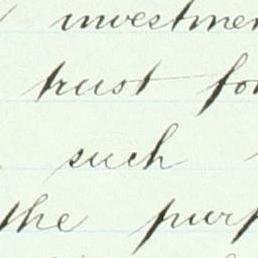 investmen
trust for
such
the purp